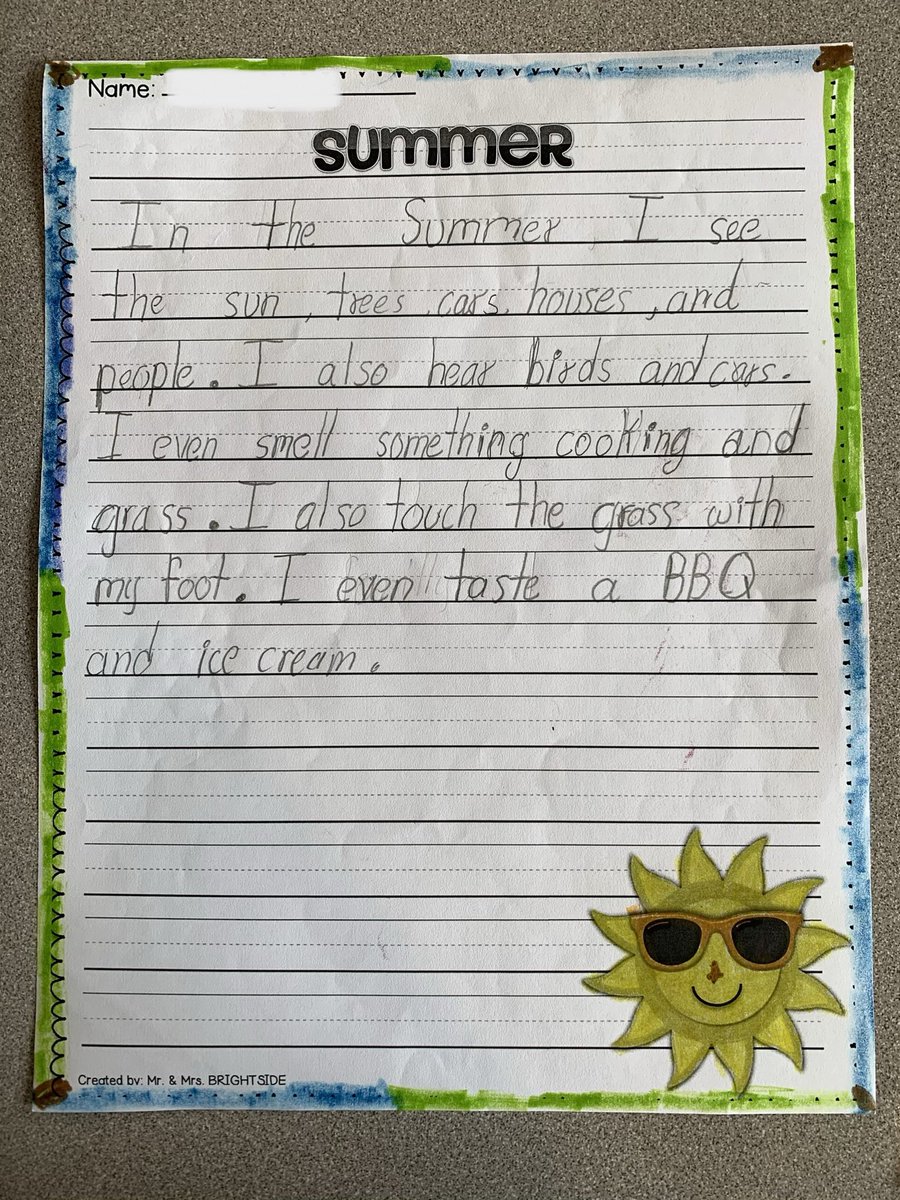 Name:
SUMMER
In the Summer, I see
the sun, trees, cars, houses, and
people. I also hear birds and cars.
I even smell something cooking and
grass. I also touch the grass with
my foot. I even taste a BBQ
and ice cream.
Created by: Mr. & Mrs. BRIGHTSIDE